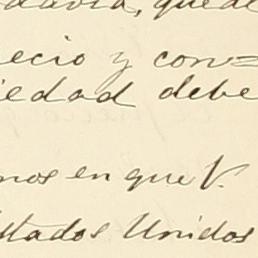 todavía, que de
ecio y con=
iedad debe
mos en que V.
stados Unidos